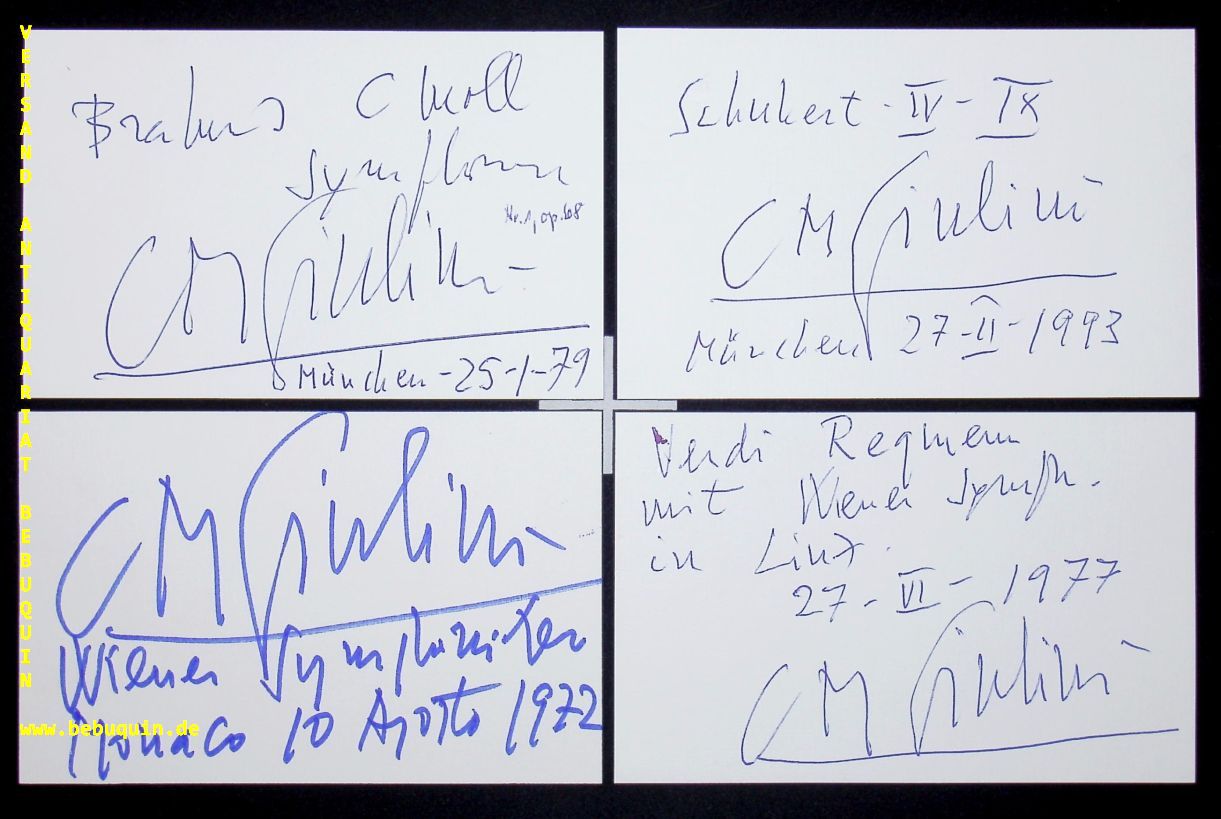 VERSAND ANTIQUARIAT BEBUQUIN
Brahms C moll
Symfonie
Nr. 1, op. 68
CM Giulini
München - 25-1-79
Schubert - IV - IX
CM Giulini
München 27-II-1993
CM Giulini
Wiener Symphoniker
Monaco 10 Agosto 1972
Verdi Requiem
mit Wiener Symph.
in Linz.
27-VI-1977
CM Giulini
www.bebuquin.de